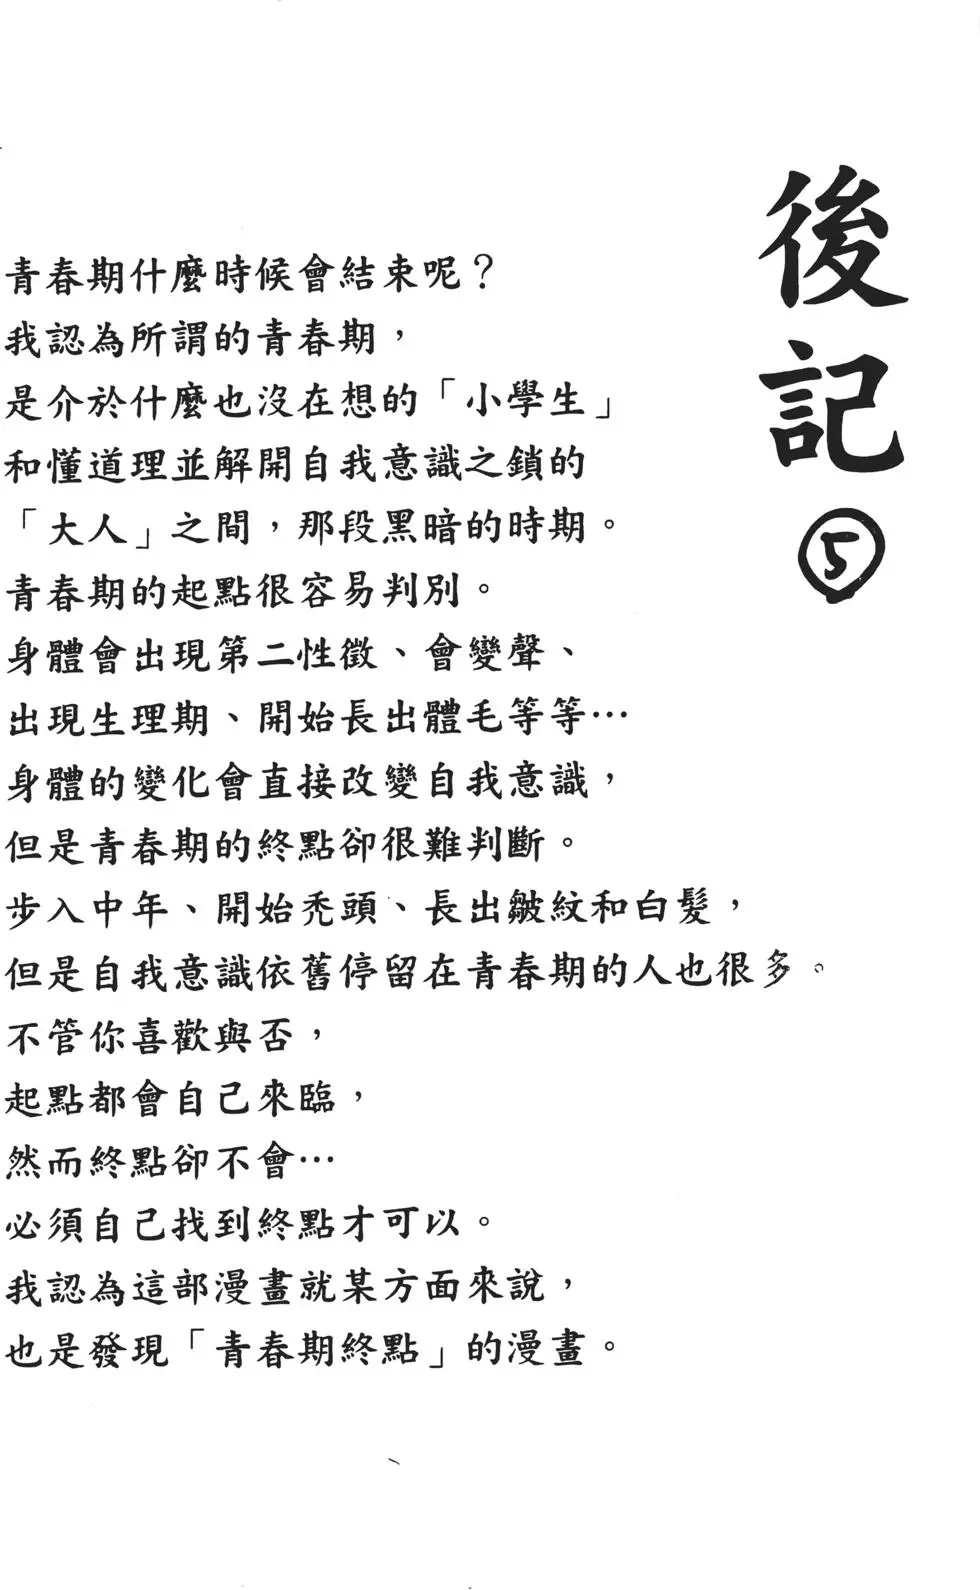 後記
⑤
青春期什麼時候會結束呢？
我認為所謂的青春期，
是介於什麼也沒在想的「小學生」
和懂道理並解開自我意識之鎖的
「大人」之間，那段黑暗的時期。
青春期的起點很容易判別。
身體會出現第二性徵、會變聲、
出現生理期、開始長出體毛等等…
身體的變化會直接改變自我意識，
但是青春期的終點卻很難判斷。
步入中年、開始禿頭、長出皺紋和白髮，
但是自我意識依舊停留在青春期的人也很多。
不管你喜歡與否，
起點都會自己來臨，
然而終點卻不會…
必須自己找到終點才可以。
我認為這部漫畫就某方面來說，
也是發現「青春期終點」的漫畫。